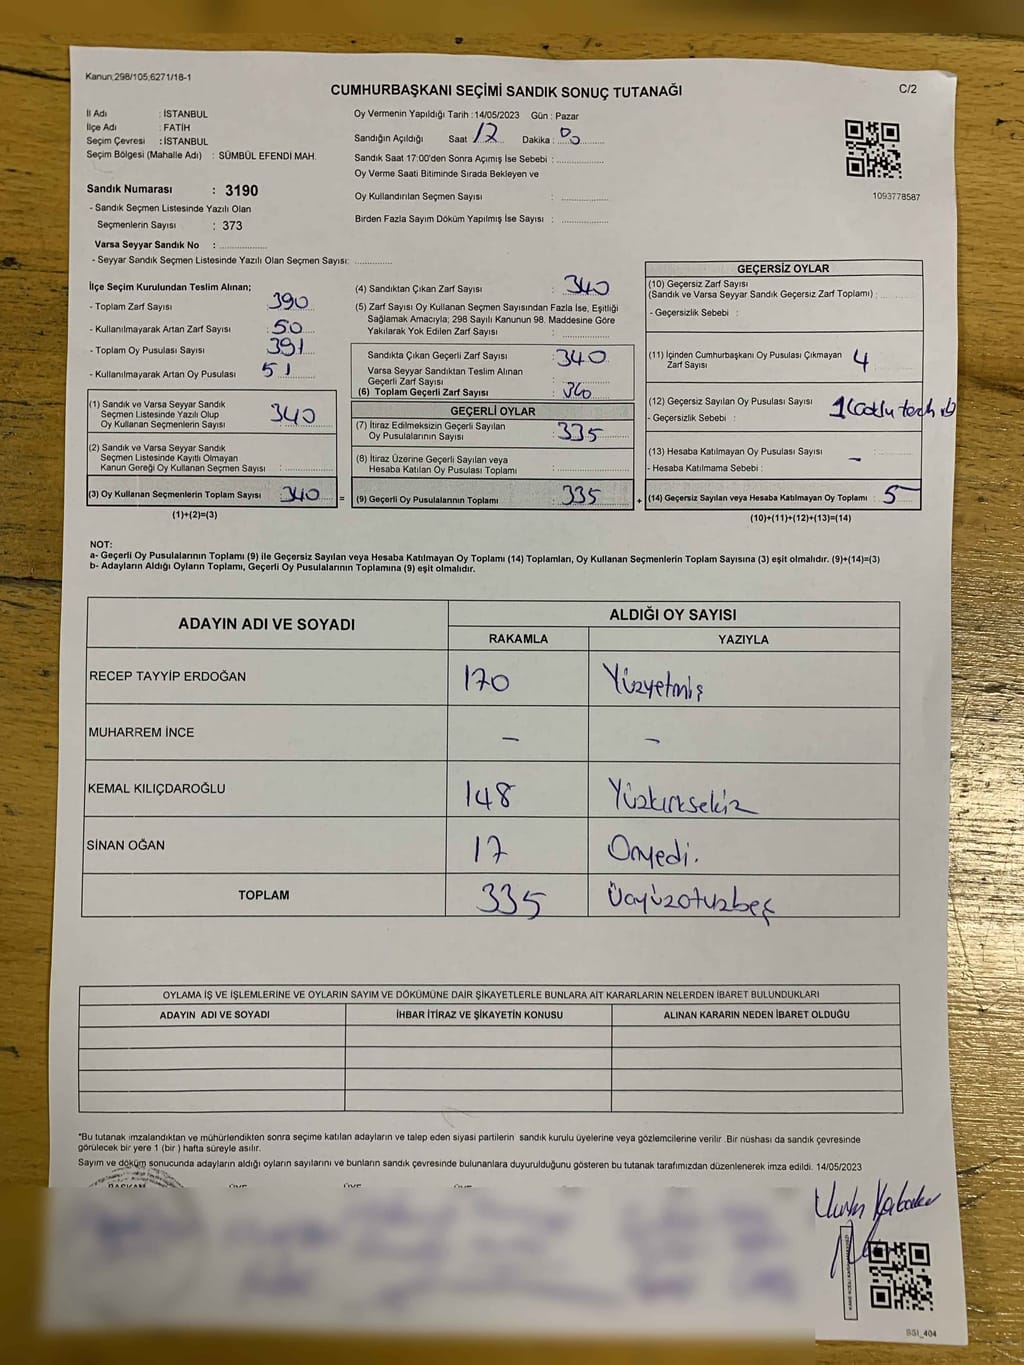 Kanun;298/105;6271/18-1
CUMHURBAŞKANI SEÇİMİ SANDIK SONUÇ TUTANAĞI
C/2
İl Adı : İSTANBUL
İlçe Adı : FATİH
Seçim Çevresi : İSTANBUL
Seçim Bölgesi (Mahalle Adı) : SÜMBÜL EFENDİ MAH.
Sandık Numarası : 3190
- Sandık Seçmen Listesinde Yazılı Olan
Seçmenlerin Sayısı : 373
Varsa Seyyar Sandık No : ..............
- Seyyar Sandık Seçmen Listesinde Yazılı Olan Seçmen Sayısı: ............
Oy Vermenin Yapıldığı Tarih : 14/05/2023 Gün : Pazar
Sandığın Açıldığı Saat 17 Dakika : 00
Sandık Saat 17:00'den Sonra Açımış İse Sebebi : ..............
Oy Verme Saati Bitiminde Sırada Bekleyen ve
Oy Kullandırılan Seçmen Sayısı : ..............
Birden Fazla Sayım Döküm Yapılmış İse Sayısı : ..............
1093778587
İlçe Seçim Kurulundan Teslim Alınan;
- Toplam Zarf Sayısı 390
- Kullanılmayarak Artan Zarf Sayısı : 50
- Toplam Oy Pusulası Sayısı 391
- Kullanılmayarak Artan Oy Pusulası 51
(1) Sandık ve Varsa Seyyar Sandık
Seçmen Listesinde Yazılı Olup
Oy Kullanan Seçmenlerin Sayısı 340
(2) Sandık ve Varsa Seyyar Sandık
Seçmen Listesinde Kayıtlı Olmayan
Kanun Gereği Oy Kullanan Seçmen Sayısı : ..............
(3) Oy Kullanan Seçmenlerin Toplam Sayısı 340 =
(1)+(2)=(3)
(4) Sandıktan Çıkan Zarf Sayısı : 340
(5) Zarf Sayısı Oy Kullanan Seçmen Sayısından Fazla İse, Eşitliği
Sağlamak Amacıyla; 298 Sayılı Kanunun 98. Maddesine Göre
Yakılarak Yok Edilen Zarf Sayısı : ..............
Sandıkta Çıkan Geçerli Zarf Sayısı : 340
Varsa Seyyar Sandıktan Teslim Alınan
Geçerli Zarf Sayısı : ..............
(6) Toplam Geçerli Zarf Sayısı : 340
GEÇERLİ OYLAR
(7) İtiraz Edilmeksizin Geçerli Sayılan
Oy Pusulalarının Sayısı : 335
(8) İtiraz Üzerine Geçerli Sayılan veya
Hesaba Katılan Oy Pusulası Toplamı : ..............
(9) Geçerli Oy Pusulalarının Toplamı : 335 +
GEÇERSİZ OYLAR
(10) Geçersiz Zarf Sayısı
(Sandık ve Varsa Seyyar Sandık Geçersiz Zarf Toplamı) :
- Geçersizlik Sebebi :
(11) İçinden Cumhurbaşkanı Oy Pusulası Çıkmayan
Zarf Sayısı 4
(12) Geçersiz Sayılan Oy Pusulası Sayısı 1
- Geçersizlik Sebebi :
(13) Hesaba Katılmayan Oy Pusulası Sayısı : -
- Hesaba Katılmama Sebebi :
(14) Geçersiz Sayılan veya Hesaba Katılmayan Oy Toplamı : 5
(10)+(11)+(12)+(13)=(14)
NOT:
a- Geçerli Oy Pusulalarının Toplamı (9) ile Geçersiz Sayılan veya Hesaba Katılmayan Oy Toplamı (14) Toplamları, Oy Kullanan Seçmenlerin Toplam Sayısına (3) eşit olmalıdır. (9)+(14)=(3)
b- Adayların Aldığı Oyların Toplamı, Geçerli Oy Pusulalarının Toplamına (9) eşit olmalıdır.
ADAYIN ADI VE SOYADI ALDIĞI OY SAYISI
RAKAMLA YAZIYLA
RECEP TAYYİP ERDOĞAN 170 Yüzyetmiş
MUHARREM İNCE - -
KEMAL KILIÇDAROĞLU 148 Yüzkırksekiz
SİNAN OĞAN 17 Onyedi.
TOPLAM 335 Üçyüzotuzbeş
OYLAMA İŞ VE İŞLEMLERİNE VE OYLARIN SAYIM VE DÖKÜMÜNE DAİR ŞİKAYETLERLE BUNLARA AİT KARARLARIN NELERDEN İBARET BULUNDUKLARI
ADAYIN ADI VE SOYADI İHBAR İTİRAZ VE ŞİKAYETİN KONUSU ALINAN KARARIN NEDEN İBARET OLDUĞU
*Bu tutanak imzalandıktan ve mühürlendikten sonra seçime katılan adayların ve talep eden siyasi partilerin sandık kurulu üyelerine veya gözlemcilerine verilir .Bir nüshası da sandık çevresinde
görülecek bir yere 1 (bir ) hafta süreyle asılır.
Sayım ve döküm sonucunda adayların aldığı oyların sayılarını ve bunların sandık çevresinde bulunanlara duyurulduğunu gösteren bu tutanak tarafımızdan düzenlenerek imza edildi. 14/05/2023
BAŞKAN ÜYE ÜYE ÜYE
BSI_404